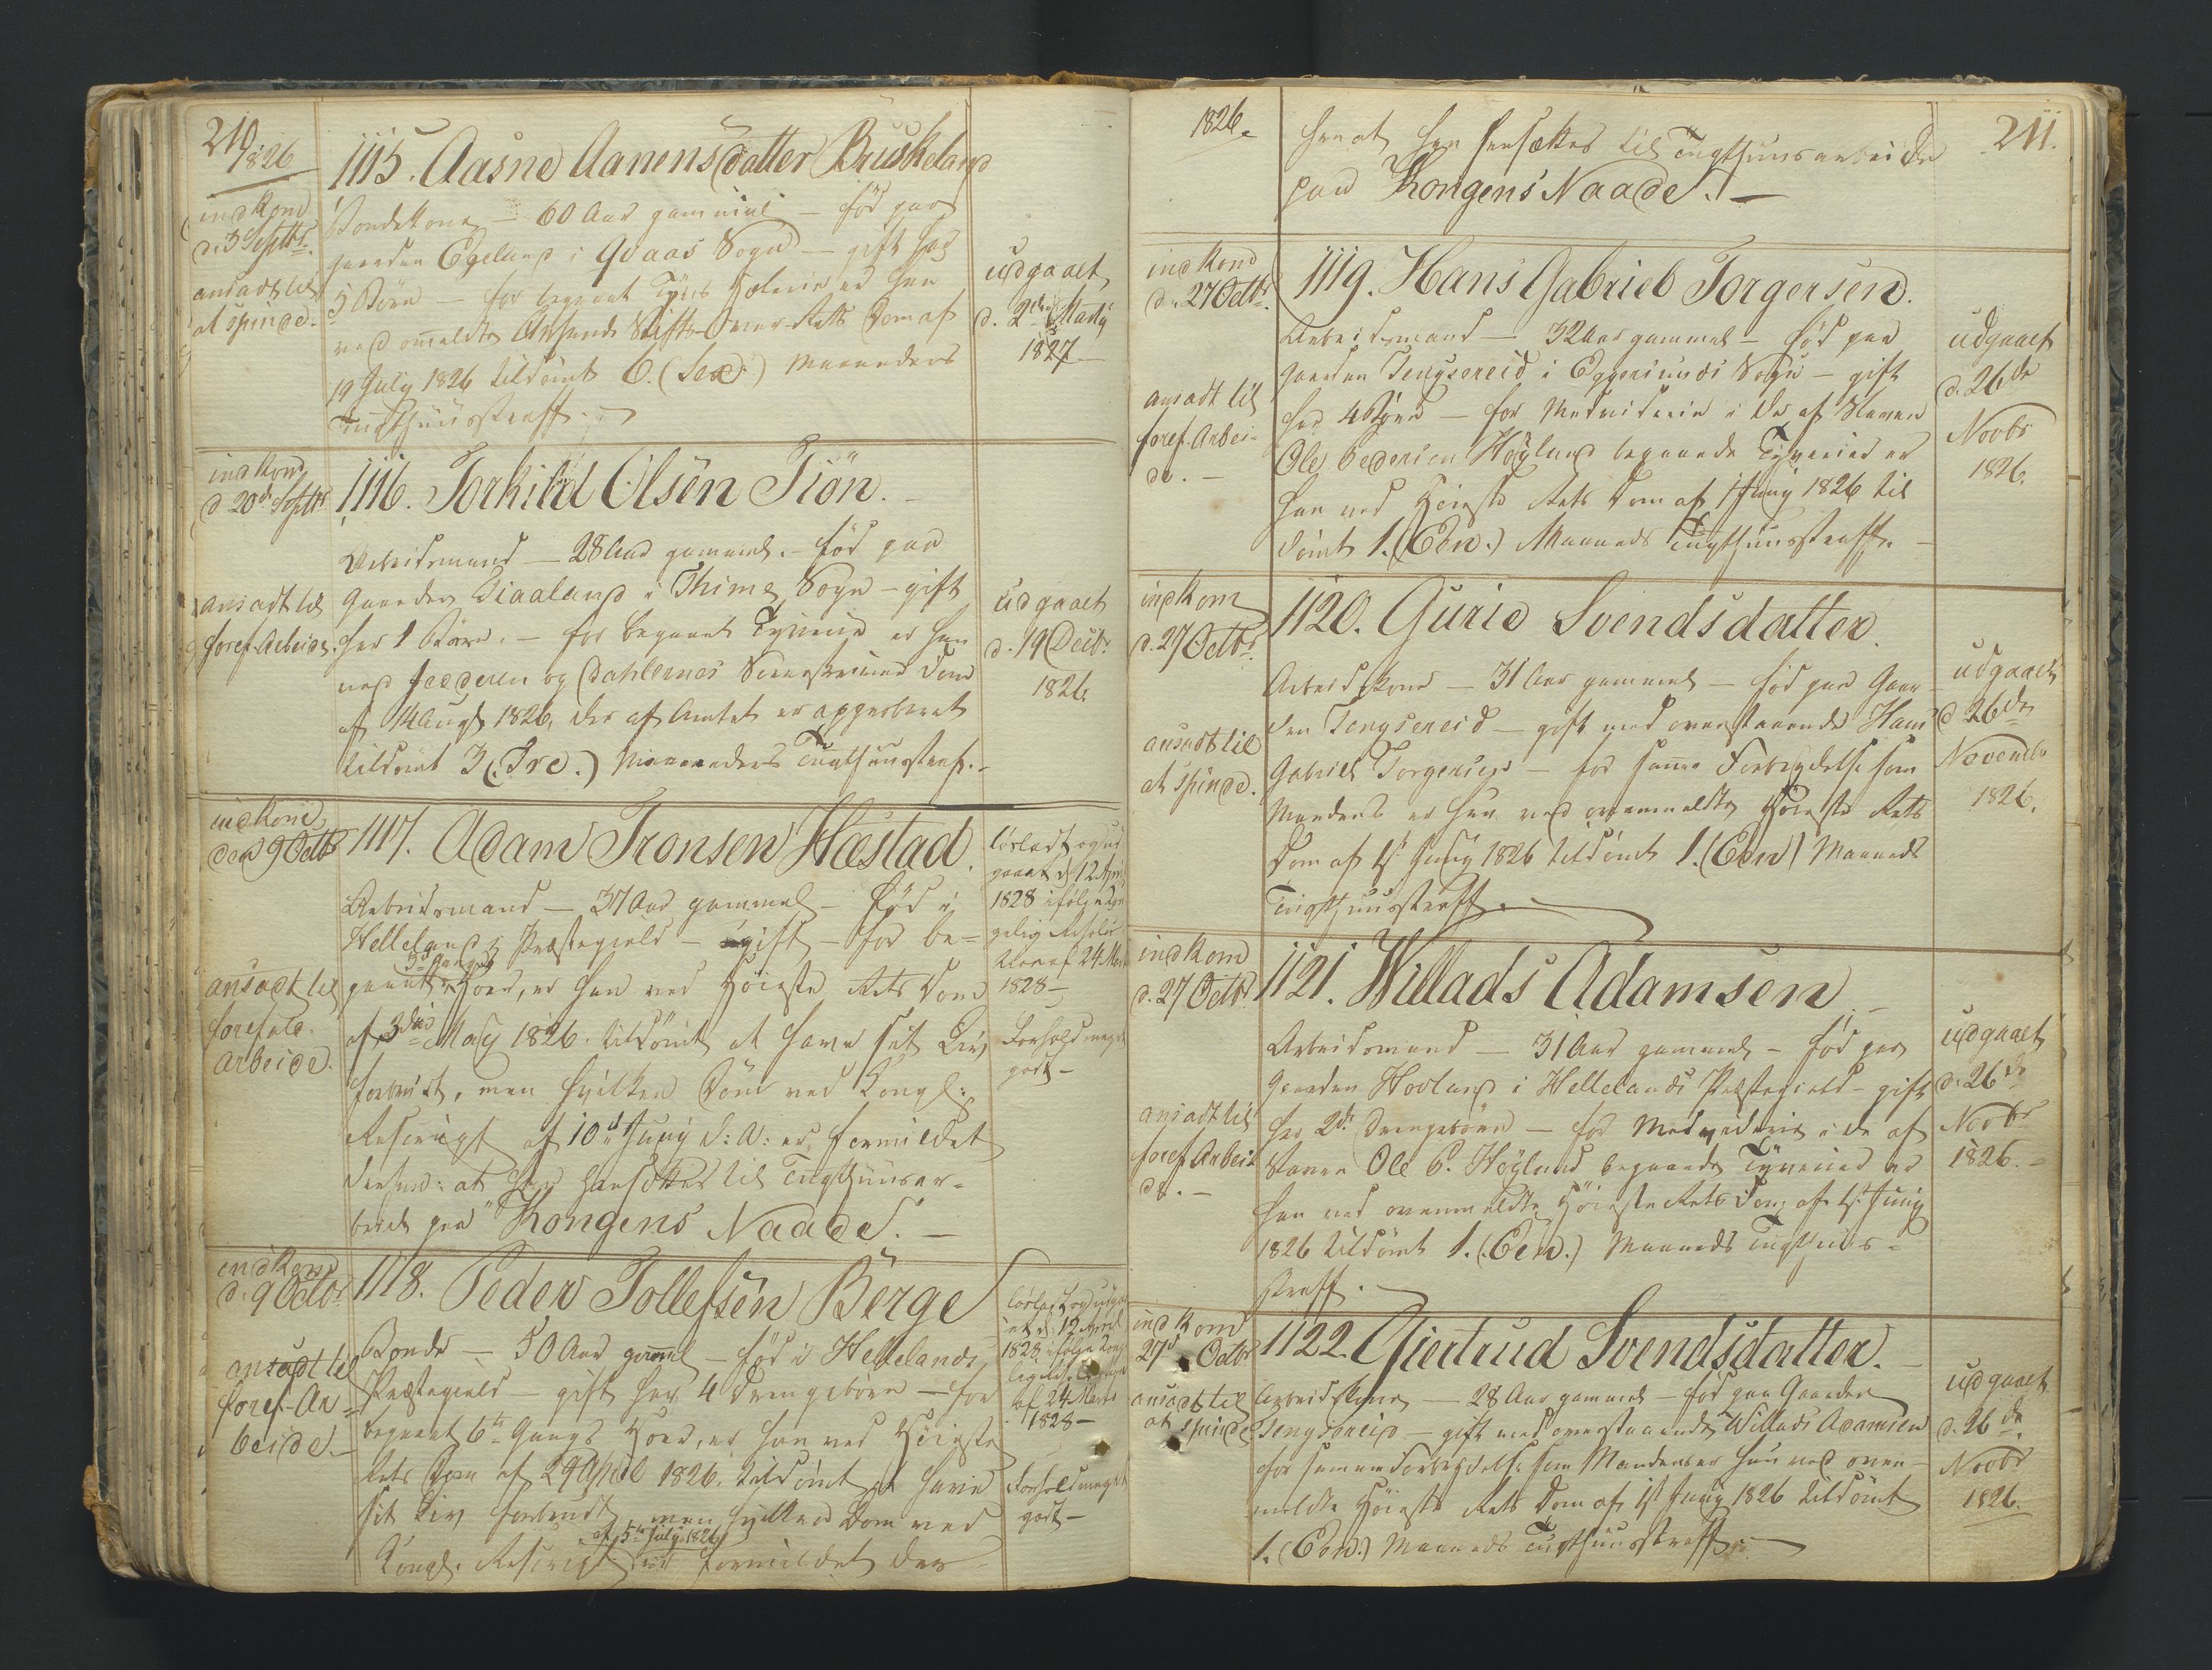 210
1826
indkom
d. 3 Septbr.
ansadt til
at spinde.
1115. Aasne Aanensdatter Bruskeland
Bondekone — 60 Aar gammel — född paa
Gaarden Egeland i Qvaas Sogn — gift har
5 Börn — for begaaet Tyvs Hæleri er hun
ved ommeldte Stifts-Over-Rets Dom af
19 July 1826 tildömt 6. (Sex) Maaneders
Tugthuusstraff.
udgaaet
d. 2den Martz
1827.
indkom
d 20de Septbr
ansadt til
foref. Arbeide.
1116. Torkild Olsen Tiön.
Arbeidsmand — 28 Aar gammel. — född paa
Gaarden Tiaaland i Thime Sogn — gift
har 1 Barn. — for begaaet Tyverie er han
ved Jedderen og Dahlernes Sorenskriver Dom
af 14 Augst 1826, der af Amtet er approberet
tildömt 3 (Tre.) Maaneders Tugthuusstraf. —
udgaaet
d. 19 Decbr
1826.
indkom
den 9 Octbr
ansadt til
forefale.
Arbeide.
1117. Adam Tronsen Hæstad.
Arbeidsmand — 37 Aar gammel — född i
Hellelands Præstegield — ugift — for be-
3die Gangs
gaaet Hoer, er han ved Höieste Rets Dom
af 3die May 1826. tildömt at have sit Liv
forbrudt, men hvilken Dom ved Kongl:
Rescript af 10de Juny d: A: er formildet
derhen: at han hensættes til Tugthuusar-
beide paa "Kongens Naade". —
lösladt og ud
gaaet d 12 April
1828 ifölge Kon
gelig Resolu
tion af 24 Marts
1828 —
Forhold meget
godt —
indkom
d. 9 Octbr
ansadt til
foref. Ar-
beide. —
1118. Peder Tollefsen Berge
Bonde — 50 Aar gammel — född i Hellelands
Præstegield — gift har 4 Drengebörn — for
begaaet 6te Gangs Hoer, er han ved Höieste
Rets Dom af 29 April 1826. tildömt at have
sit Liv forbrudt, men hvilken Dom ved
af 5te July 1826
Kongl. Rescript er formildet der-
lösladt og udga
aet d. 12 April
1828 ifölge Kong
lig Resolution
af 24 Marts
1828 —
Forhold meget
godt —
1826.
211.
hen at han hensættes til Tugthuusarbeide
paa Kongens Naade. —
indkom
d. 27 Octbr.
ansadt til
foref. Arbei-
de. —
1119. Hans Gabriel Torgersen.
Arbeidsmand — 32 Aar gammel — född paa
Gaarden Tengsereid i Eggersunds Sogn — gift
har 4 Börn — for Medviderie i de af Slaven
Ole Pedersen Höyland begaaede Tyverier er
han ved Höieste Rets Dom af 1 Juny 1826 til
dömt 1. (Een.) Maaneds Tugthuusstraff. —
udgaaet
d. 26de
Novbr
1826.
indkom
d. 27 Octbr.
ansadt til
at spinde.
1120. Gurie Svendsdatter.
Arbeidskone — 31 Aar gammel — född paa Gaar-
den Tengsereid — gift med ovenstaaende Hans
Gabriel Torgersen — for samme Forbrydelse som
Mandens er hun ved ovenmeldte Höieste Rets
Dom af 1st Juny 1826 tildömt 1. (Een) Maaneds
Tugthuusstraff. —
udgaaet
d 26de
November
1826.
indkom
d. 27 Octbr
ansadt til
foref. Arbei
de. —
1121. Willads Adamsen. —
Arbeidsmand — 31 Aar gammel — född paa
Gaarden Hovland i Hellelands Præstegield — gift
har 2de Drengebörn — for Medviderie i de af
Slaven Ole P. Höyland begaaede Tyverier er
han ved ovenmeldte Höieste Rets Dom af 1st Juny
1826 tildömt 1. (Een.) Maaneds Tugthuus-
straff. —
udgaaet
d. 26de
Novbr
1826. —
indkom
27de Octbr
ansadt til
at spinde
1122. Giertrud Svendsdatter. —
Arbeidskone — 28 Aar gammel — född paa Gaarden
Tengsereid — gift med ovenstaaende Willads Adamsen
for samme Forbrydelse som Mandens er hun ved oven-
meldte Höieste Rets Dom af 1st Juny 1826 tildömt
1. (Een.) Maaneds Tugthuusstraff. —
udgaaet
d. 26de
Novbr
1826.